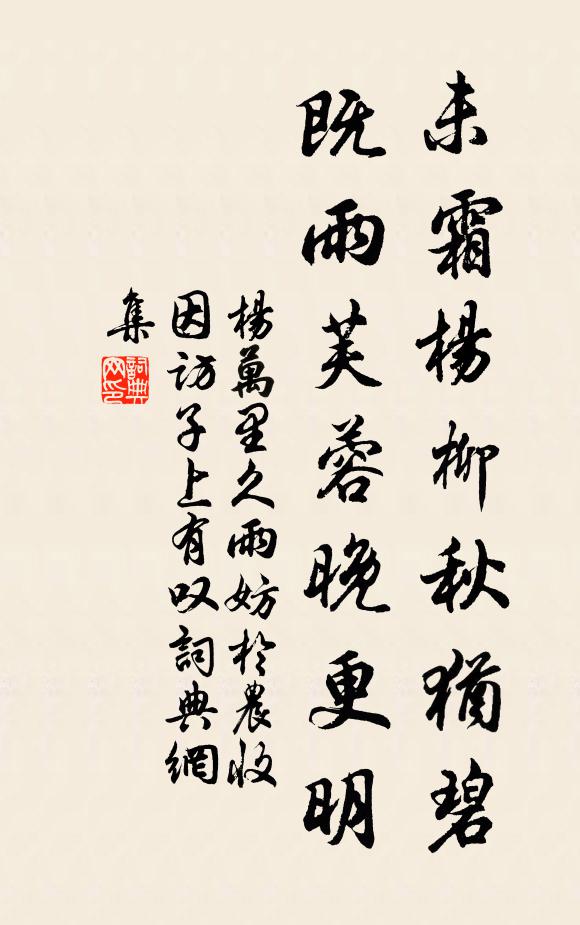 未霜楊柳秋猶碧
既雨芙蓉晚更明
楊萬里久雨妨於農收
因訪子上有叹詞典網
集
詞典
网印